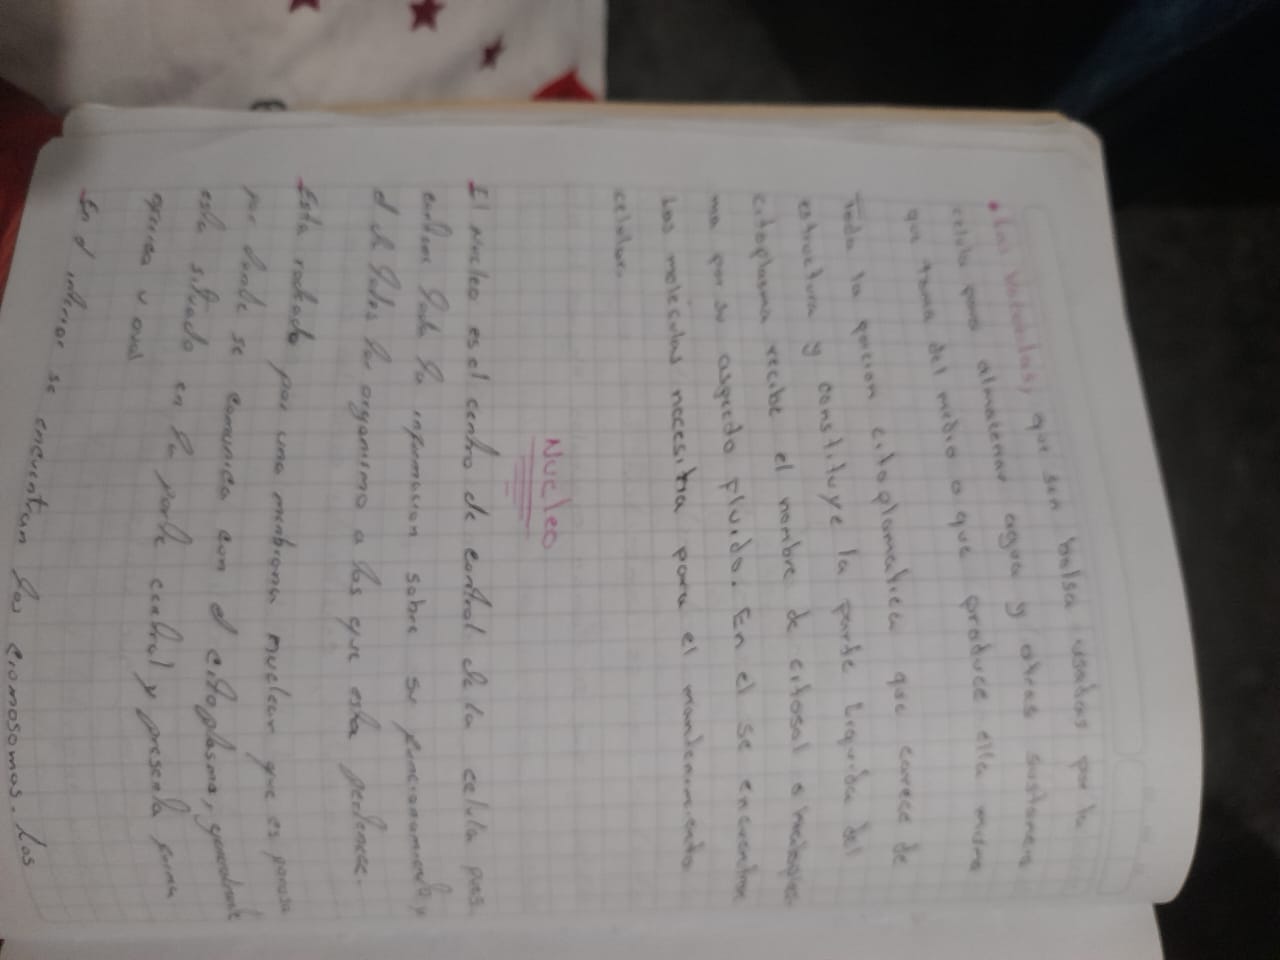 • Las Vacuolas, que son bolsa usadas por la
celula para almacenar agua y otras sustancia
que toma del medio o que produce ella misma
Toda la porcion citoplamatica que carece de
estructura y constituye la parte liquida del
citoplasma recibe el nombre de citosol o
ma por su aspecto fluido. En el se encuentran
las moleculas necesitra para el mantenimiento
celular.
Nucleo
El Nucleo es el centro de control de la celula pues
contiene toda la informacion sobre su funcionamiento y
el de todos los organismo a los que esta pertenece.
Esta rodeado por una membrana nuclear que es porosa
por donde se comunica con el citoplasma, generalmente
esta situado en la parte central y presenta forma
esferica u oval
En el interior se encuentran los cromosomas. Los